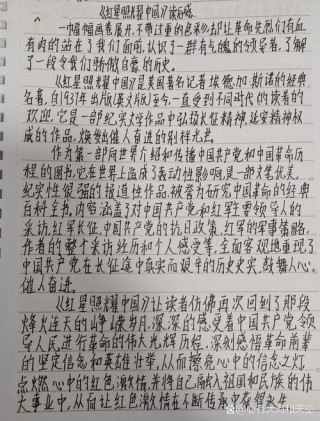 《红星照耀中国》读后感
一幅幅画卷展开,不带过重的色彩,却让革命先烈们有血
有肉的站在了我们面前,认识了一群有气魄的领导者,了解
了一段令我们骄傲自豪的历史。
《红星照耀中国》是美国著名记者埃德加·斯诺的经典
名著,自1937年出版(英文版)至今,一直受到不同时代的读者的
欢迎。它是一部纪实文学作品中弘扬长征精神、延安精神权
威的作品,焕发出催人奋进的别样光芒。
作为第一部向世界介绍和传播中国共产党和中国革命历
程的图书,它在世界上造成了轰动性影响,是一部文笔优美、
纪实性很强的报道性作品,被誉为研究中国革命的经典
百科全书,内容涵盖了对中国共产党和红军主要领导人的
采访,红军长征,中国共产党的抗日政策,红军的军事策略,
作者的整个采访经历和个人感受等,全面客观地重现了
中国共产党在长征途中真实而艰辛的历史史实,鼓舞人心,
催人奋进。
《红星照耀中国》让读者仿佛再次回到了那段
烽火连天的峥嵘岁月,深深的感受着中国共产党领
导人民进行革命的伟大光辉历程,深刻感悟革命前辈
的坚定信念和英雄壮举,从而擦亮心中的信念之灯,
点燃心中的红色激情,并将自己融入祖国和民族的伟
大事业中,从而让红色激情在不断传承中获得永生